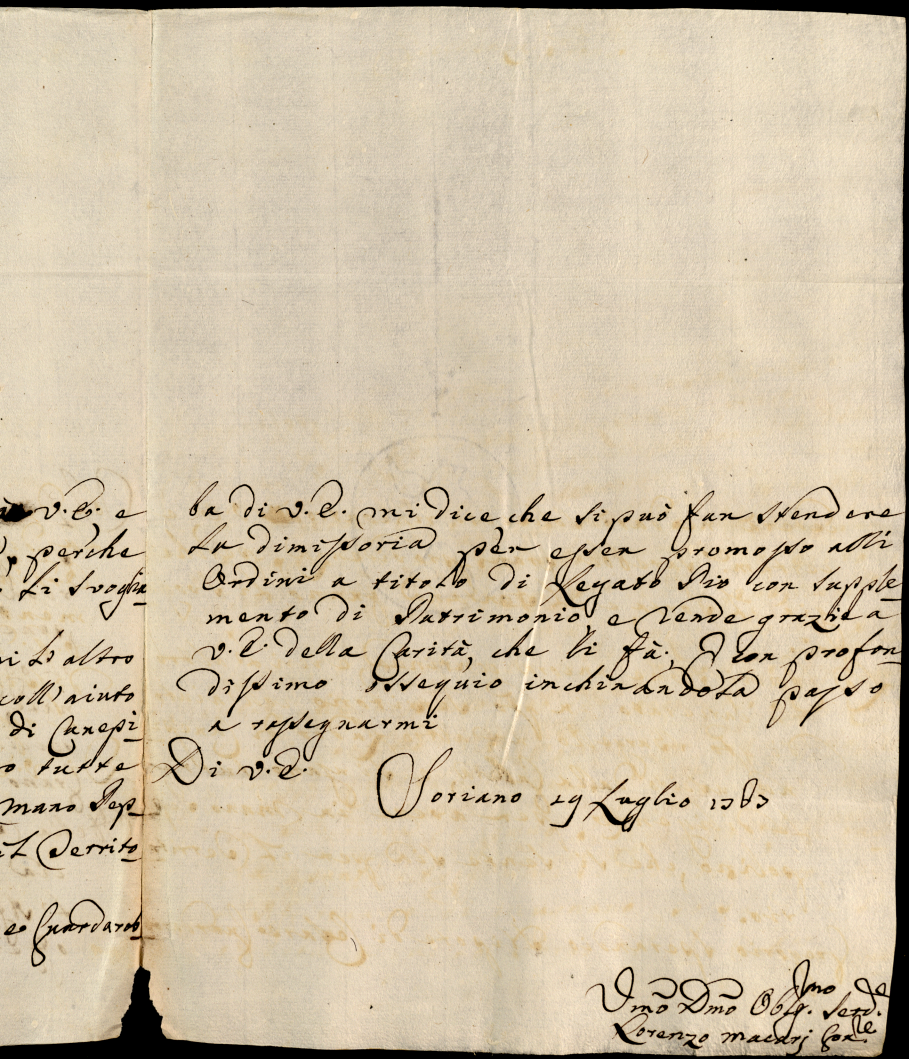 v.E. e
perche
Li svoglia-
ni L'altro
coll'aiuto
di Canepi-
o tutte
mano Dep-
il Territo-
eo Guardarob-
ba di v.E. mi dice che si può far stendere
La dimissoria per esser promosso alli
Ordini a titolo di Legato Pio con supple-
mento di Patrimonio, e rende grazie a
v.E. della Carità, che li fà; E con profon-
dissimo ossequio inchinandola passo
a rassegnarmi
Di v.E.
Soriano 29 Luglio 1767
Umo Dmo Oblg.mo Serd.e
Lorenzo Macarj